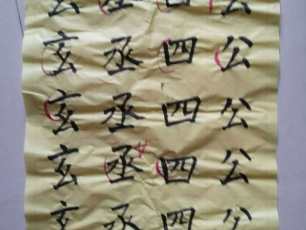 玄 丞 四 公
玄 丞 四 公
玄 丞 四 公
玄 丞 四 公
玄 丞 四 公